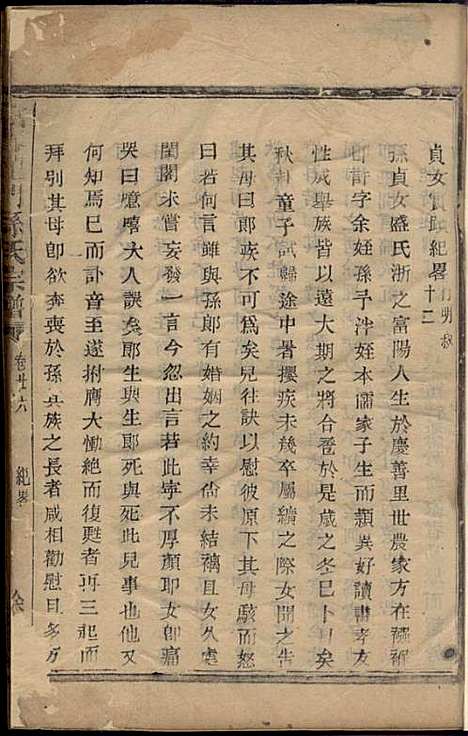 貞女實蹟紀畧
十二
孫貞女盛氏浙之富陽人生於慶善里世農家方在襁褓
時許字余姪孫予泮姪本儒家子生而穎異好讀書孝友
性成舉族皆以遠大期之將合巹於是歲之冬已卜日矣
秋初童子試歸途中暑攖疾未幾卒屬纊之際女聞之告
其母曰郎疾不可為矣兒往訣以慰彼原下其母駭而怒
曰若何言雖與孫郎有婚姻之約幸尙未結褵且女久處
閨閣未嘗妄發一言今忽出言若此寧不厚顏耶女卽痛
哭曰噫嘻大人誤矣郎生與生郎死與死此兒事也他
何知焉已而訃音至遂拊膺大慟絕而復甦者再三起而
拜別其母卽欲奔喪於孫孫族之長者咸相勸慰且多方
門孫氏宗譜
卷廿六
紀畧